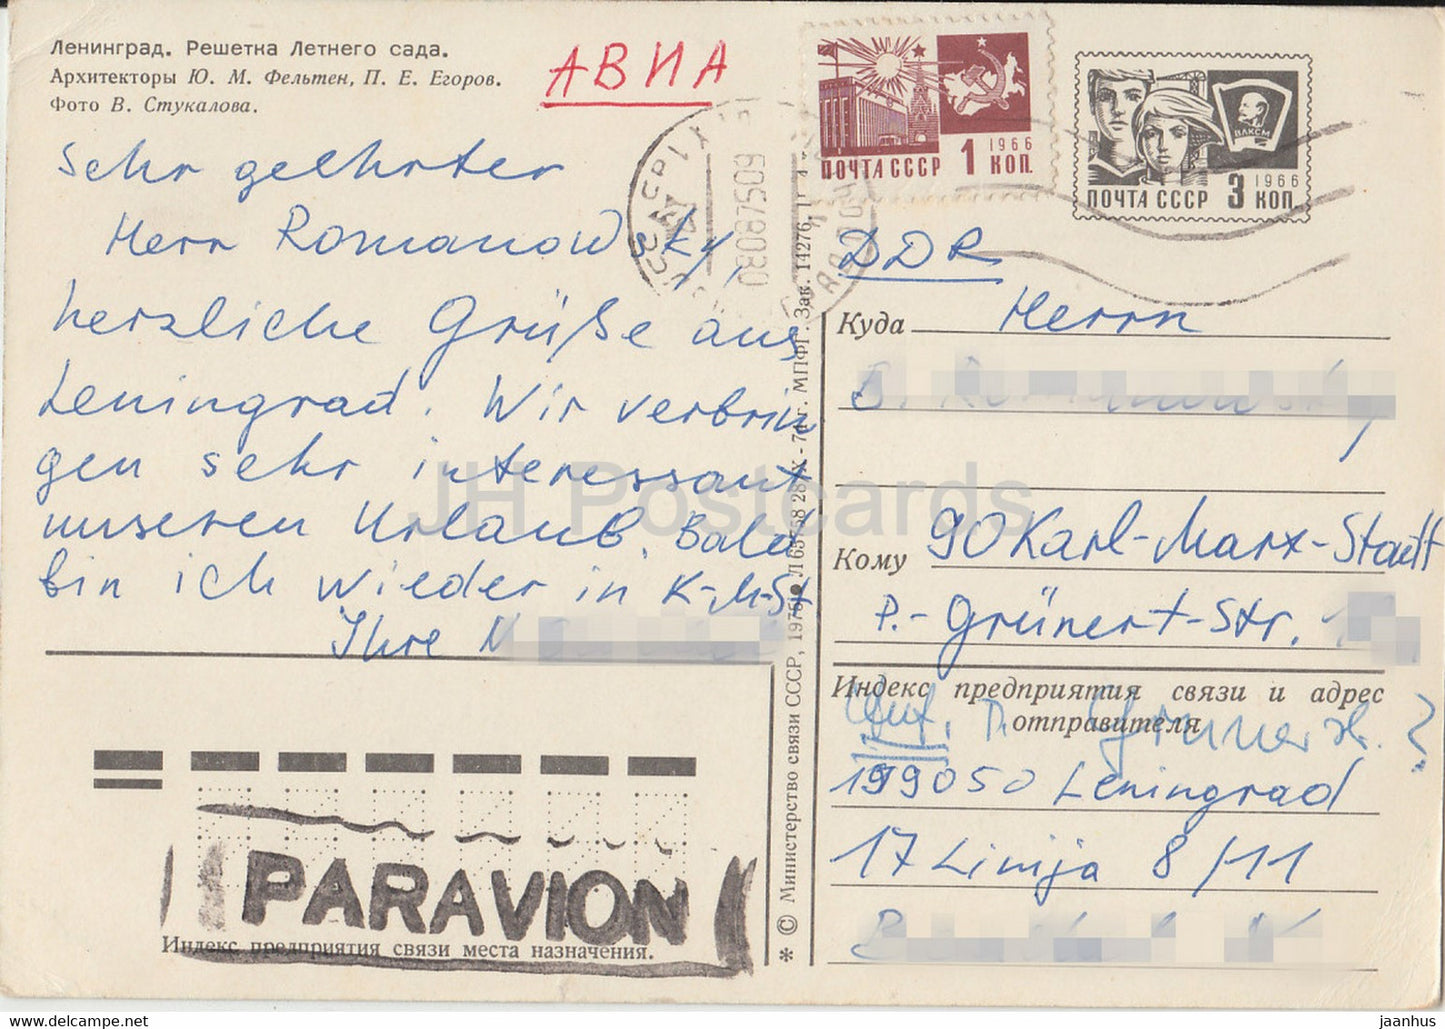 Ленинград. Решетка Летнего сада.
Архитекторы Ю. М. Фельтен, П. Е. Егоров.
Фото В. Стукалова.
АВИА
ПОЧТА СССР 1 КОП.
1966
ВЛКСМ
ПОЧТА СССР 3 КОП.
1966
Sehr geehrter
Herr Romanowsky,
herzliche Grüße aus
Leningrad. Wir verbrin
gen sehr interessant
unseren Urlaub. Bald
bin ich wieder in K-M-St
Ihre N
DDR
Куда Herrn
Кому 90 Karl-Marx-Stadt
P.-Grünert-Str.
Индекс предприятия связи и адрес
отправителя
199050 Leningrad
17 Linija 8/11
PARAVION
Индекс предприятия связи места назначения.
* © Министерство связи СССР, 1975
МПФГ. Зак. 14276.
JH Postcards
jaanhus